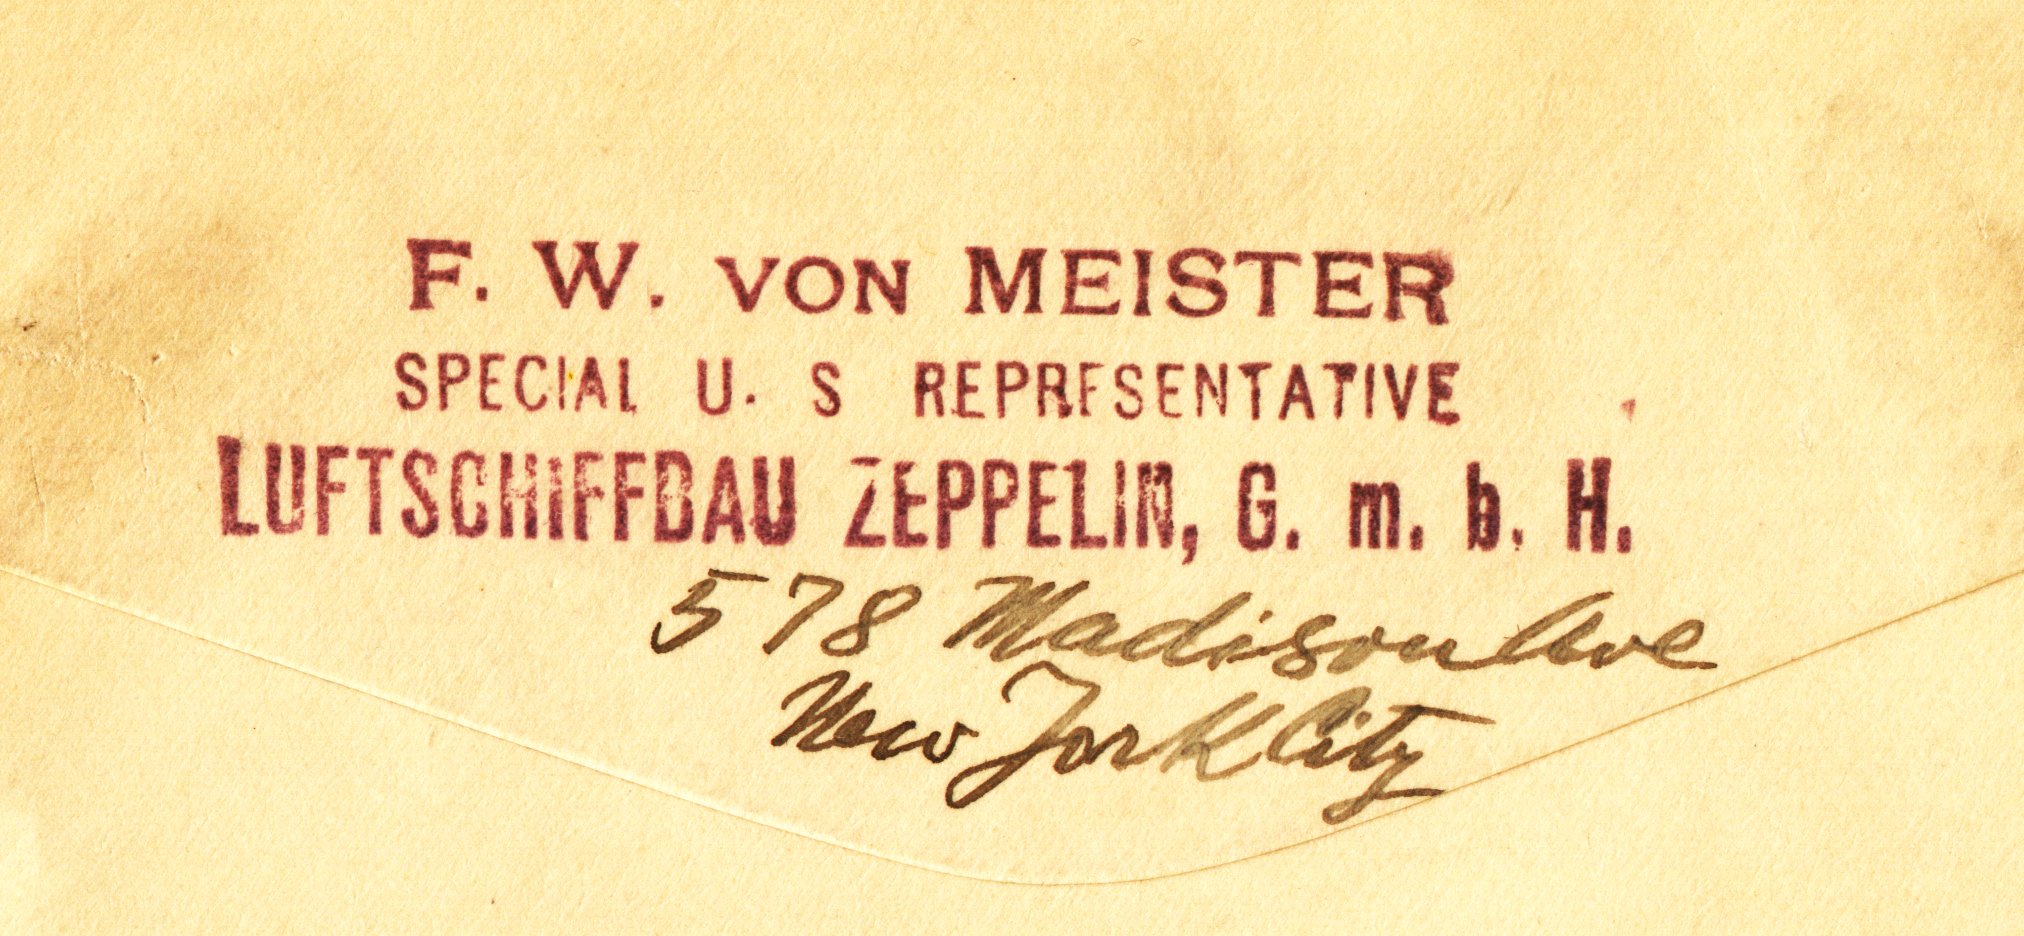 F. W. VON MEISTER
SPECIAL U. S REPRESENTATIVE
LUFTSCHIFFBAU ZEPPELIN, G. m. b. H.
578 Madison Ave
New York City